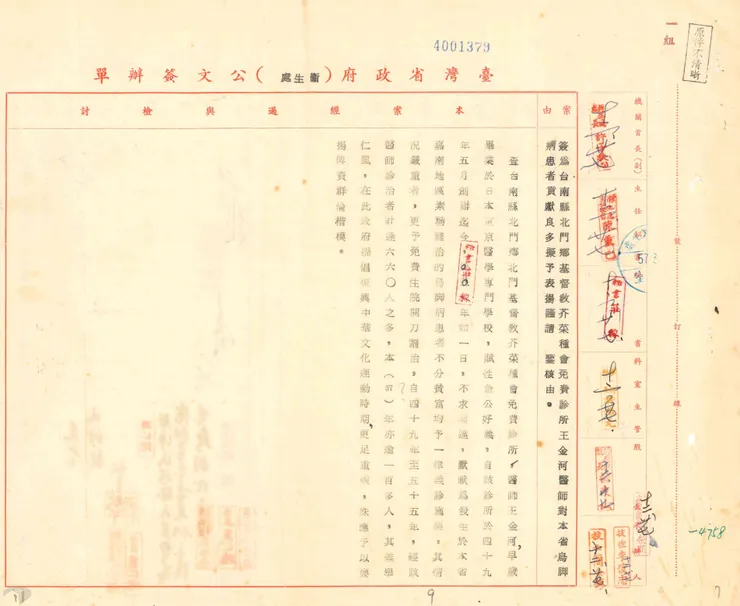 4001379
原件不清晰
一組
臺灣省政府(衛生處)公文簽辦單
案由
簽為台南縣北門鄉基督教芥菜種會免費診所王金河醫師對本省烏腳
病患者貢獻良多擬予表揚謹請 鑒核由。
本案經過與檢討
查台南縣北門鄉北門基督教芥菜種會免費診所,醫師王金河早歲
畢業於日本東京醫學專門學校,賦性急公好義,自該診所於四十九
年五月創辦迄今,年如一日,不求聞達,默默為發生於本省
嘉南地區素稱難治的烏腳病患者不分貧富均予一律義診施藥,其情
況嚴重者,更予免費住院開刀割治,自四十九年至五十五年,經該
醫師診治者計達六六〇人之多,本(57)年亦逾一百多人,其義舉
仁風,在此政府提倡復興中華文化運動時期,更足重視,殊應予以褒
揚俾資群倫楷模。
機關首長(副)
主任秘書
秘書莊
省科室主管股長
人
號
訂
線
4758
9
7
11